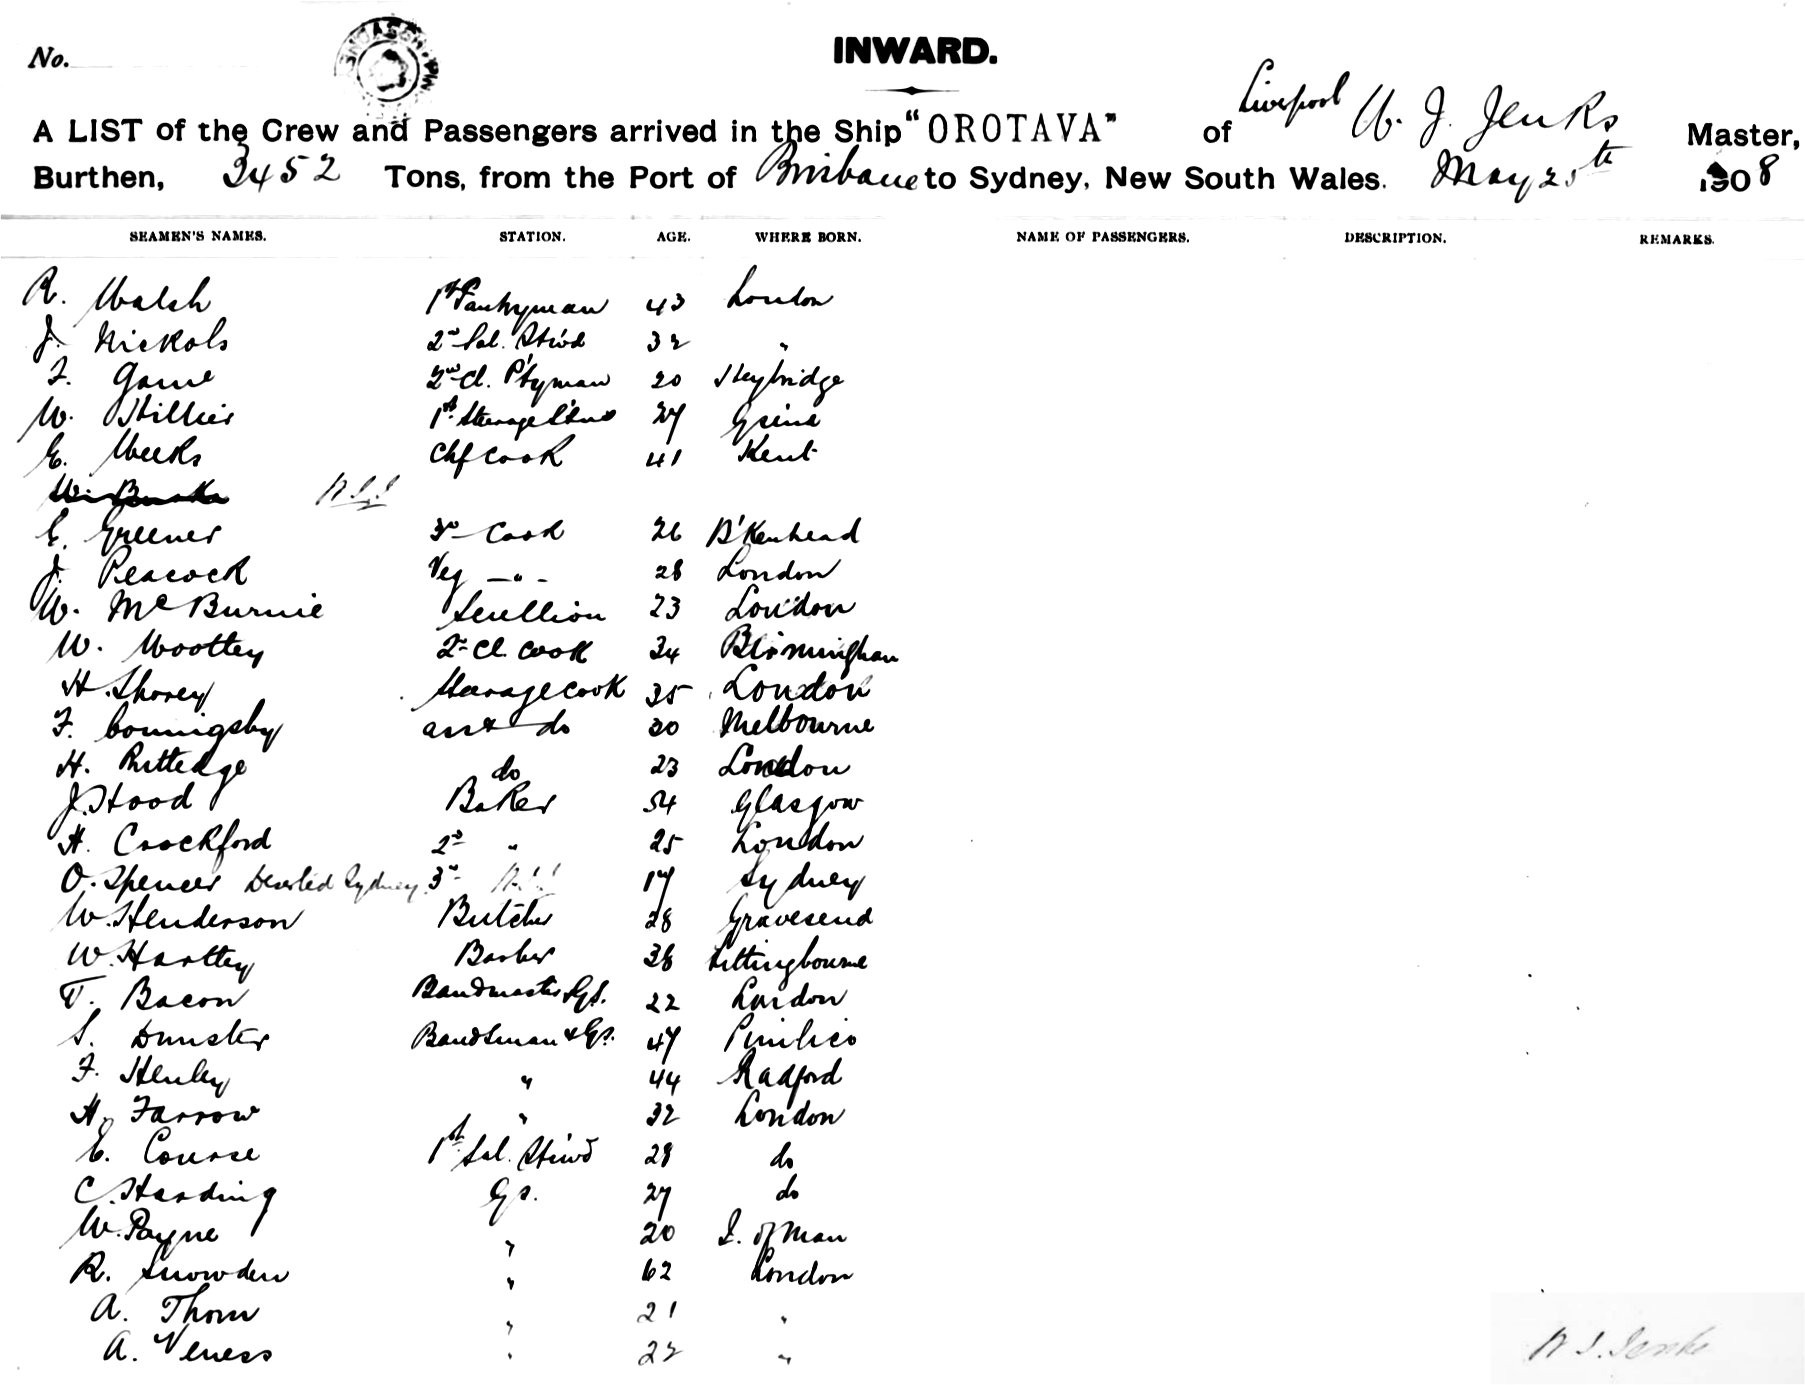 No.
INWARD.
A LIST of the Crew and Passengers arrived in the Ship "OROTAVA" of Liverpool W. J. Jenks Master,
Burthen, 3452 Tons, from the Port of Brisbane to Sydney, New South Wales. May 25th 1908
SEAMEN'S NAMES. STATION. AGE. WHERE BORN. NAME OF PASSENGERS. DESCRIPTION. REMARKS.
R. Walsh 1st Pantryman 43 London
J. Nickols 2nd Sal. Stwd 32 "
F. Game 2nd Cl. P'tyman 20 Heybridge
W. Hillier 1st Steerage 27
E. Weeks Chf Cook 41 Kent
W. Burke
E. Greener 3rd Cook 26 B'kenhead
J. Peacock Veg — " — 28 London
W. McBurnie Scullion 23 London
W. Woottey 2nd Cl. Cook 34 Birmingham
H. Shorey Steerage cook 35 London
F. Conningsby asst do 30 Melbourne
H. Rutledge do 23 London
J. Hood Baker 54 Glasgow
H. Crockford 2nd " 25 London
O. Spencer Deserted Sydney. 3rd 17 Sydney
W. Henderson Butcher 28 Gravesend
W. Hartley Barber 38 Sittingbourne
T. Bacon Bandmaster Gs. 22 London
S. Dunster Bandsman & Gs. 47 Pimlico
F. Henley " 44 Radford
H. Farrow " 32 London
E. Course 1st Sal. Stwd 28 do
C. Harding Gs. 27 do
W. Payne " 20 I. of Man
R. Snowden " 62 London
A. Thorn " 21 "
A. Veness " 22 "
W. J. Jenks